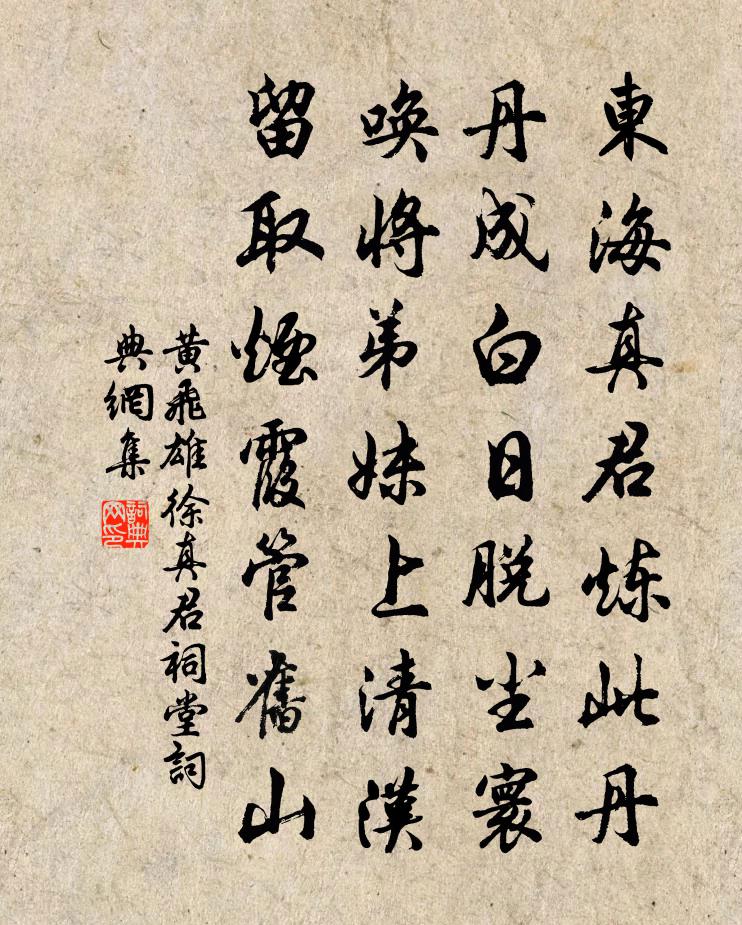 東海真君炼此丹
丹成白日脱尘寰
唤將弟妹上清漢
留取煙霞管舊山
黃飛雄徐真君祠堂詞
典網集
詞典
网印